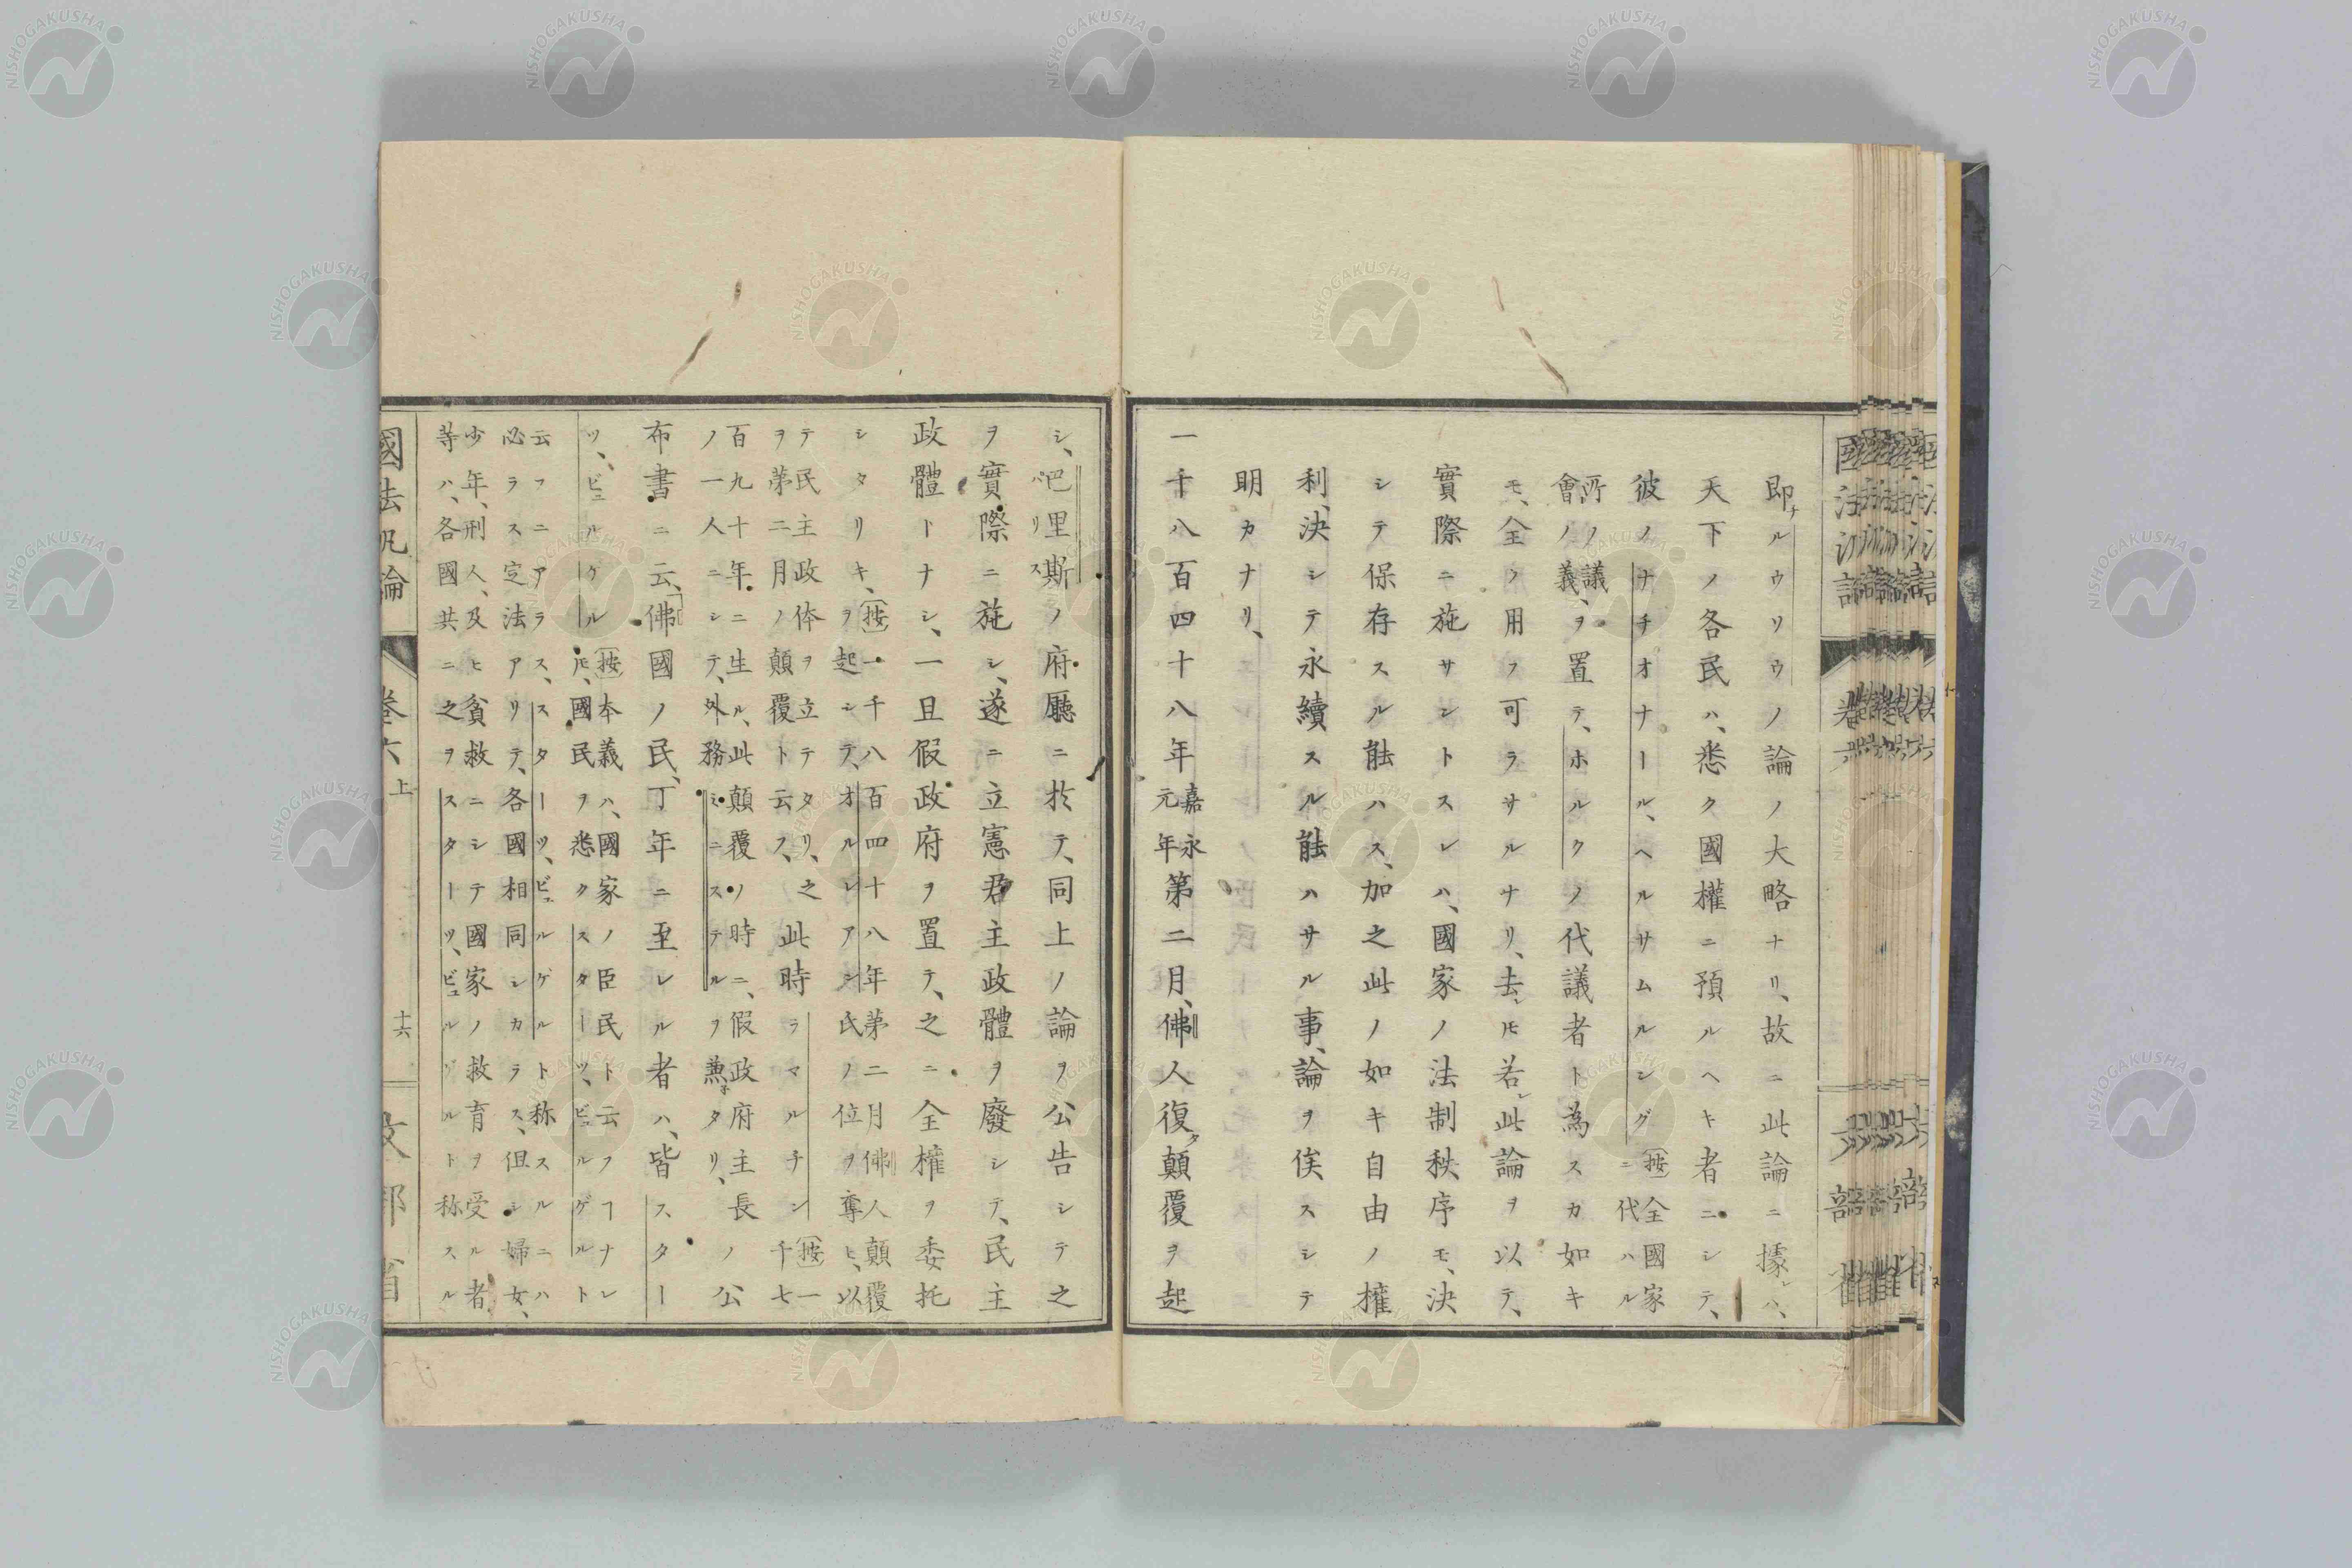 即ナルウリウノ論ノ大略ナリ、故ニ此論ニ據レハ、
天下ノ各民ハ、悉ク國權ニ預ルヘキ者ニシテ、
彼ノナチオナール、ヘルサムルング(按)全國家ニ代ハル
所ノ議會ノ義、ヲ置テ、ホルクノ代議者ト為スカ如キ
モ、全ク用フ可ラサルナリ、去レ𪜈若シ此論ヲ以テ、
實際ニ施サントスレハ、國家ノ法制秩序モ、決
シテ保存スル能ハス、加之此ノ如キ自由ノ權
利、決シテ永續スル能ハサル事、論ヲ俟スシテ
明カナリ、
一千八百四十八年嘉永元年第二月、佛人復タ顛覆ヲ起
シ、巴里斯パリスノ府廳ニ於テ、同上ノ論ヲ公告シテ之
ヲ實際ニ施シ、遂ニ立憲君主政體ヲ廢シテ、民主
政體トナシ、一旦假政府ヲ置テ、之ニ全權ヲ委托
シタリキ、(按)一千八百四十八年第二月佛人顛覆ヲ起シテ、オルレアン氏ノ位ヲ奪ヒ、以
テ民主政体ヲ立テタリ、之ヲ第二月ノ顛覆ト云フ、此時ラマルチン(按)一千七
百九十年ニ生ル、此顛覆ノ時ニ、假政府主長ノ一人ニシテ、外務ミニステルヲ兼子タリ、ノ公
布書ニ云、佛國ノ民、丁年ニ至レル者ハ、皆スター
ツ、ビュルゲル(按)本義ハ、國家ノ臣民ト云フヿナレ𪜈、國民ヲ悉クスターツ、ビュルゲルト
云フニアラス、スターツ、ビュルゲルト称スルニハ必ラス定法アリテ、各國相同シカラス、但シ婦女、
少年、刑人、及ヒ貧救ニシテ國家ノ救育ヲ受ル者等ハ、各國共ニ之ヲスターツ、ビュルゲルト称スル
國法汎論
卷六上
十六
文部省